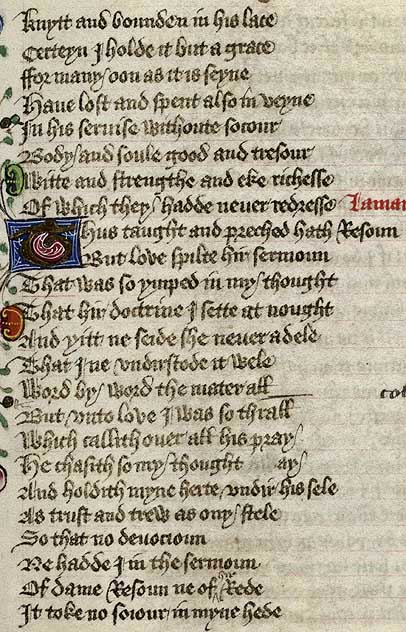 Knytt and bounden in his lace
Certeyn I holde it but a grace
ffor many oon as it is seyne
Have lost and spent also in veyne
In his servise withoute socour
Body and soule good and tresour
Witte and strengthe and eke richesse
Of which they hadde never redresse Lamaunt
Thus taught and preched hath Resoun
But love spilte hir sermoun
That was so ymped in my thought
That hir doctrine I sette at nought
And yitt ne seide she never a dele
That I ne undirstode it wele
Word by word the mater all
But unto love I was so thrall
Which callith over all his pray
He chasith so my thought ay
And holdith myne herte undir his sele
As trust and trew as ony stele
So that no devocioun
Ne hadde I in the sermoun
Of dame Resoun ne of hir Rede
It toke no soiour in myne hede